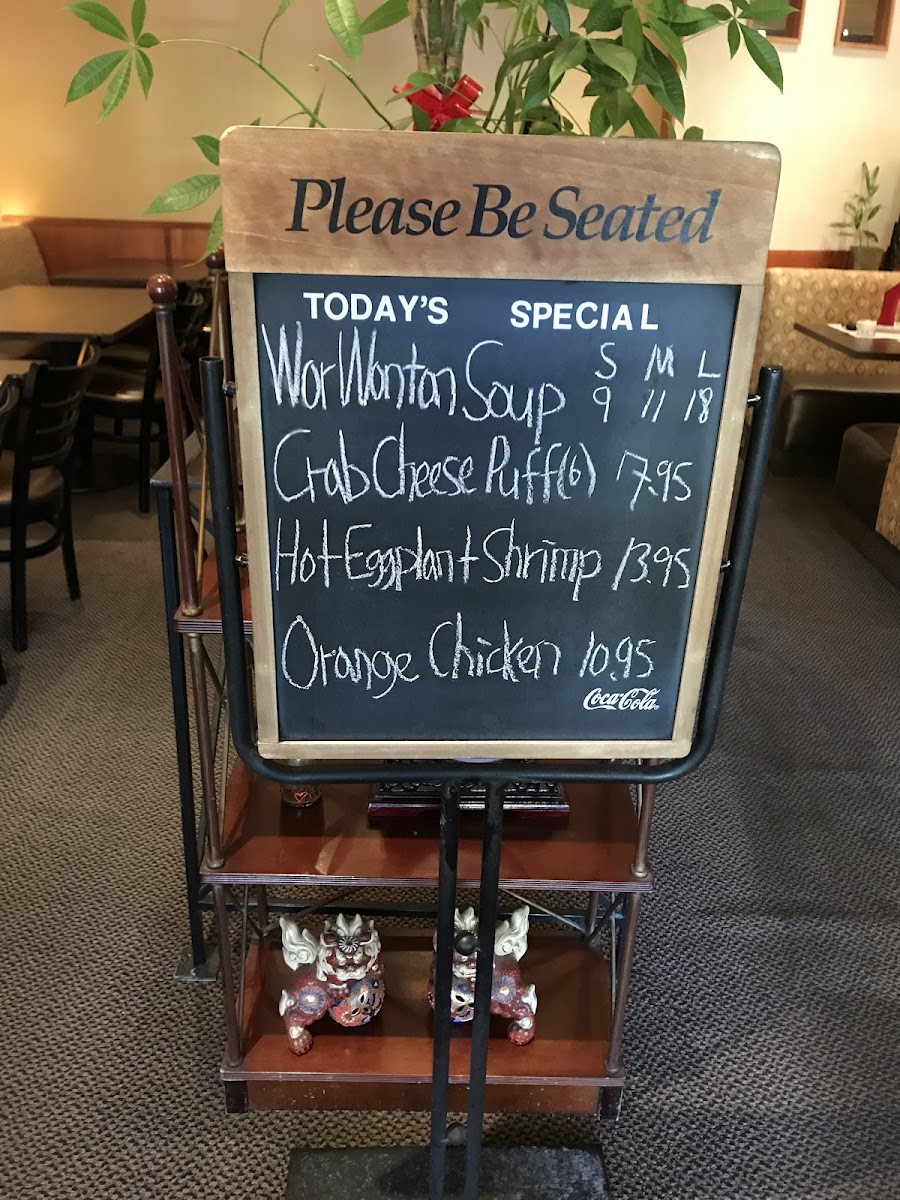 Please Be Seated
TODAY'S SPECIAL
S M L
Wor Wonton Soup 9 11 18
Crab Cheese Puff (6) 7.95
Hot Eggplant Shrimp 13.95
Orange Chicken 10.95
Coca-Cola